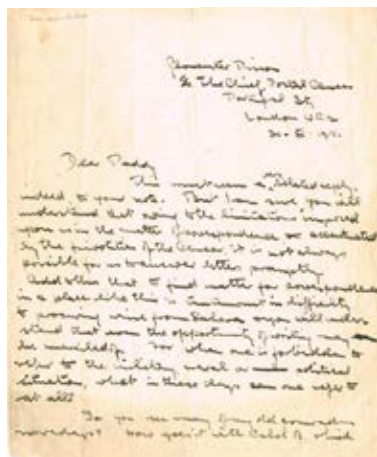 Gloucester Prison
℅ The Chief Postal Censor
London W.C.2
Dear Paddy
This must seem a very belated reply,
indeed, to your note. But I am sure you will
understand that owing to the limitations imposed
upon us in the matter of correspondence as accentuated
by the priorities of the Censor, it is not always
possible for us to answer letters promptly.
Add to this that to find matter for correspondence
in a place like this is in difficulty
to you will under-
stand that even the opportunity of writing may
be. For when one is forbidden to
refer to the military, naval or political
situation, what in these days can one refer to
at all?
Do you see many of my old comrades
nowadays? How goes it with